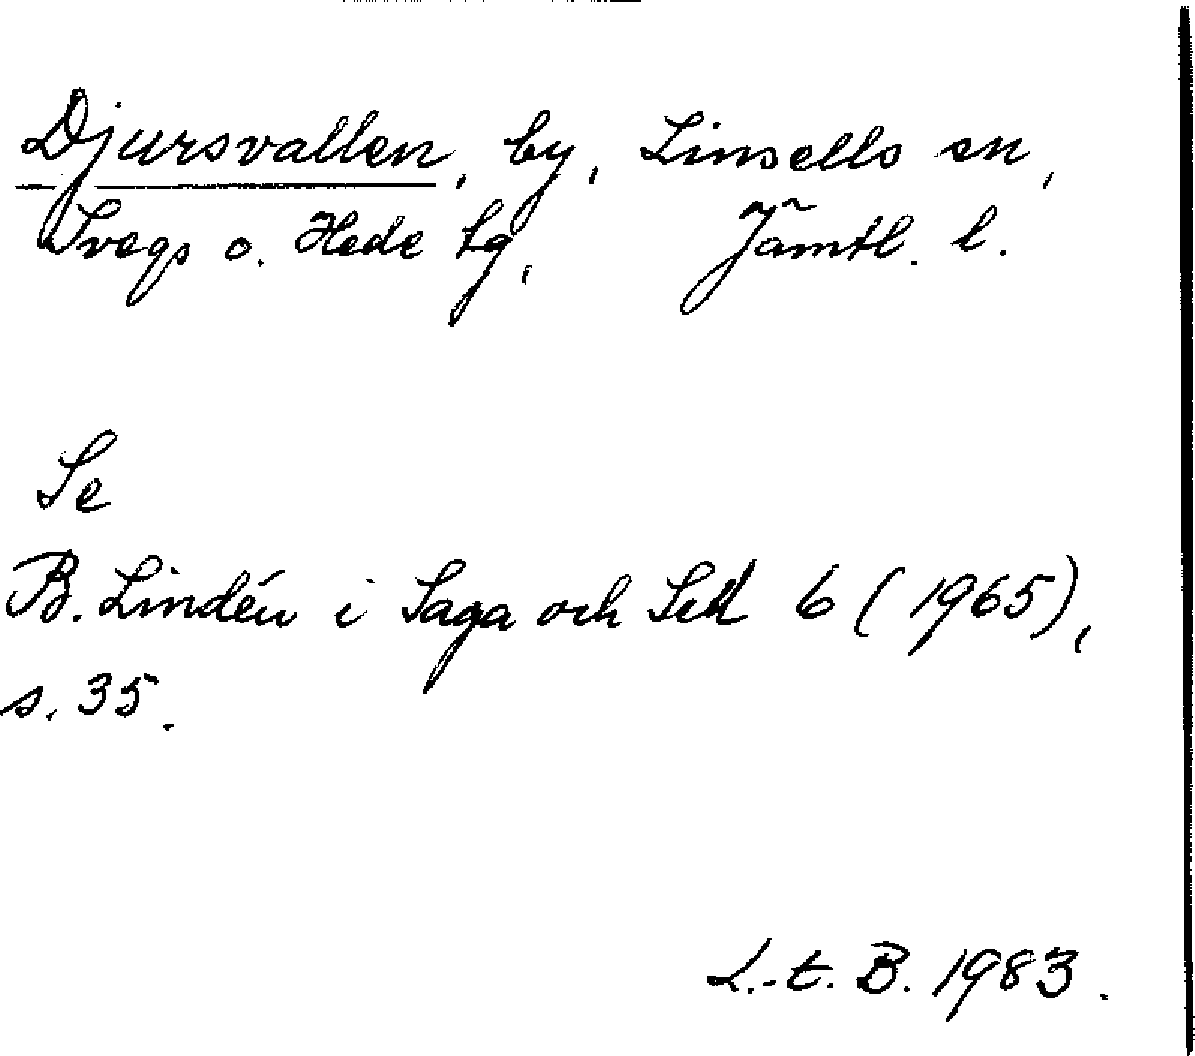 Djursvallen, by, Linsells sn,
Svegs o. Hede tg, Jämtl. l.
Se
B. Lindén i Saga och Sed 6 (1965),
s. 35.
L.-t. B. 1983.